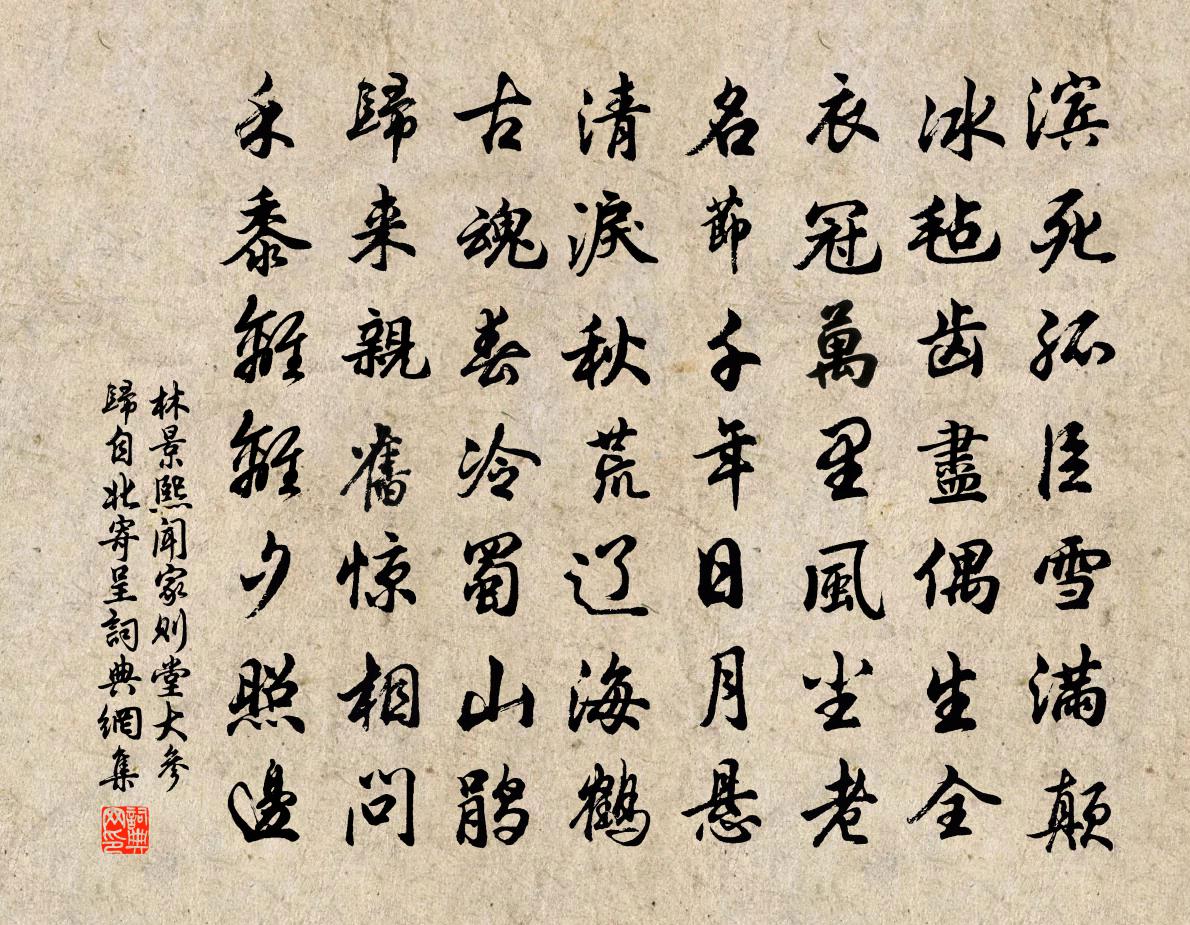 滨死孤臣雪满颠
冰毡齿盡偶生全
衣冠萬里風尘老
名節千年日月悬
清淚秋荒辽海鶴
古魂春冷蜀山鹃
歸来親舊惊相問
禾黍離離夕照邊
林景熙闻家则堂大參
歸自北寄呈詞典網集
詞典網印